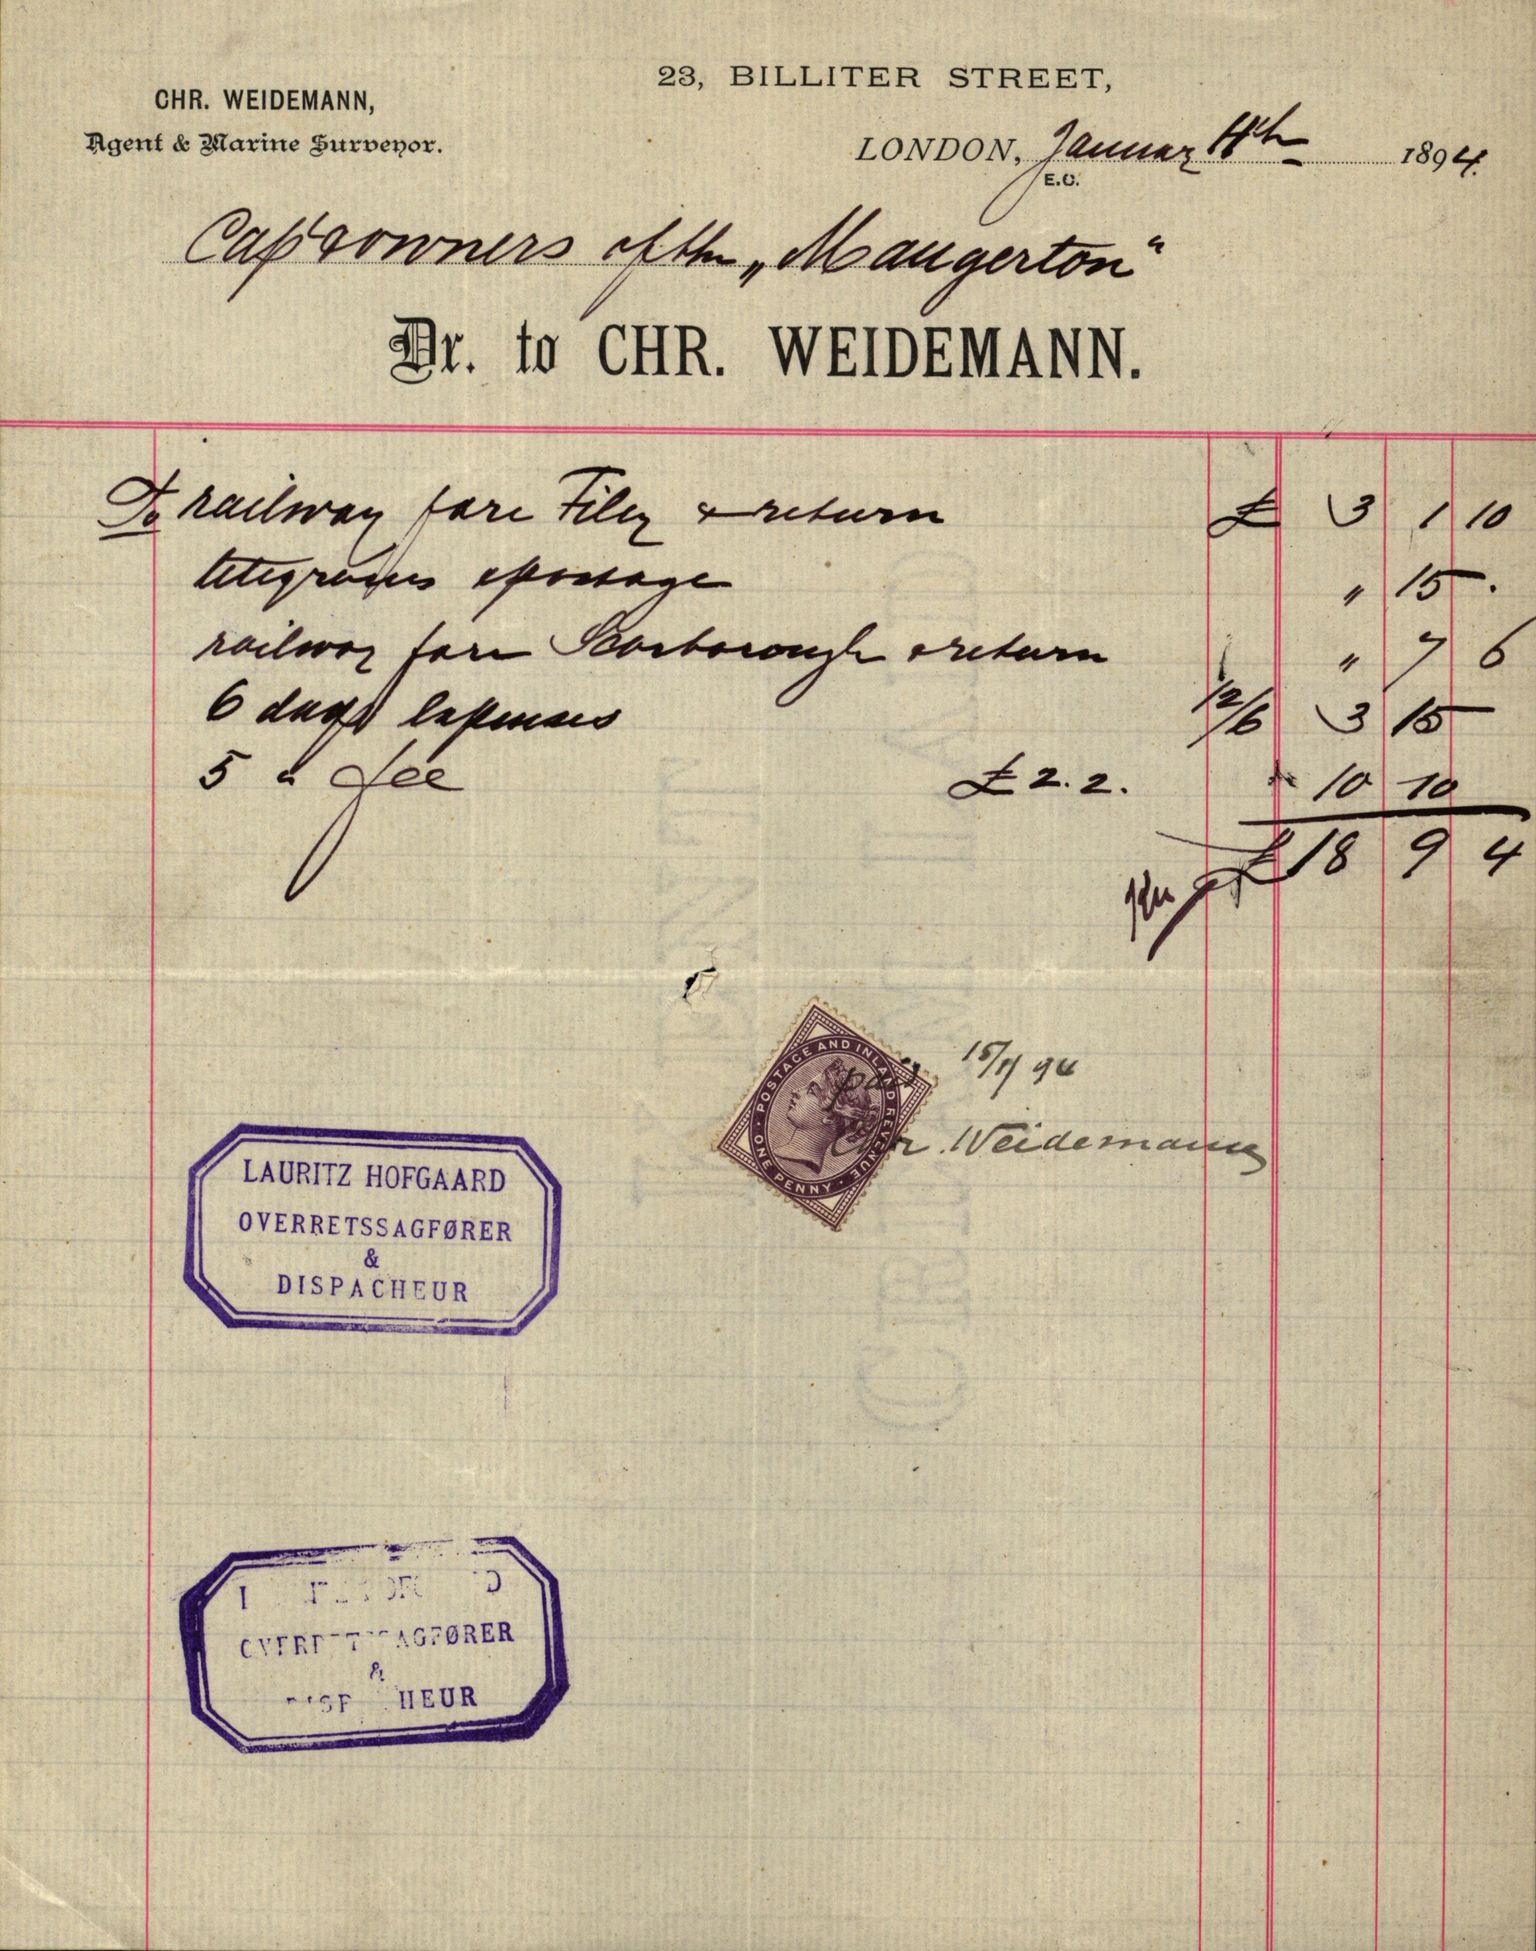 23, BILLITER STREET,
CHR. WEIDEMANN,
Agent & Marine Surveyor.
LONDON, Januar 11th 1894.
E.C.
Capt & owners of the „Maugerton“
Dr. to CHR. WEIDEMANN.
To railway fare Filey & return £ 3 1 10
telegrams & postage " 15 .
railway fare Scarborough & return " 7 6
6 days expenses 12/6 3 15 –
5 " fee £ 2.2. 10 10
£ 18 9 4
POSTAGE AND INLAND REVENUE
ONE PENNY
paid 15/1 94
Chr. Weidemann
LAURITZ HOFGAARD
OVERRETSSAGFØRER
&
DISPACHEUR
OVERRETSSAGFØRER
&
DISPACHEUR